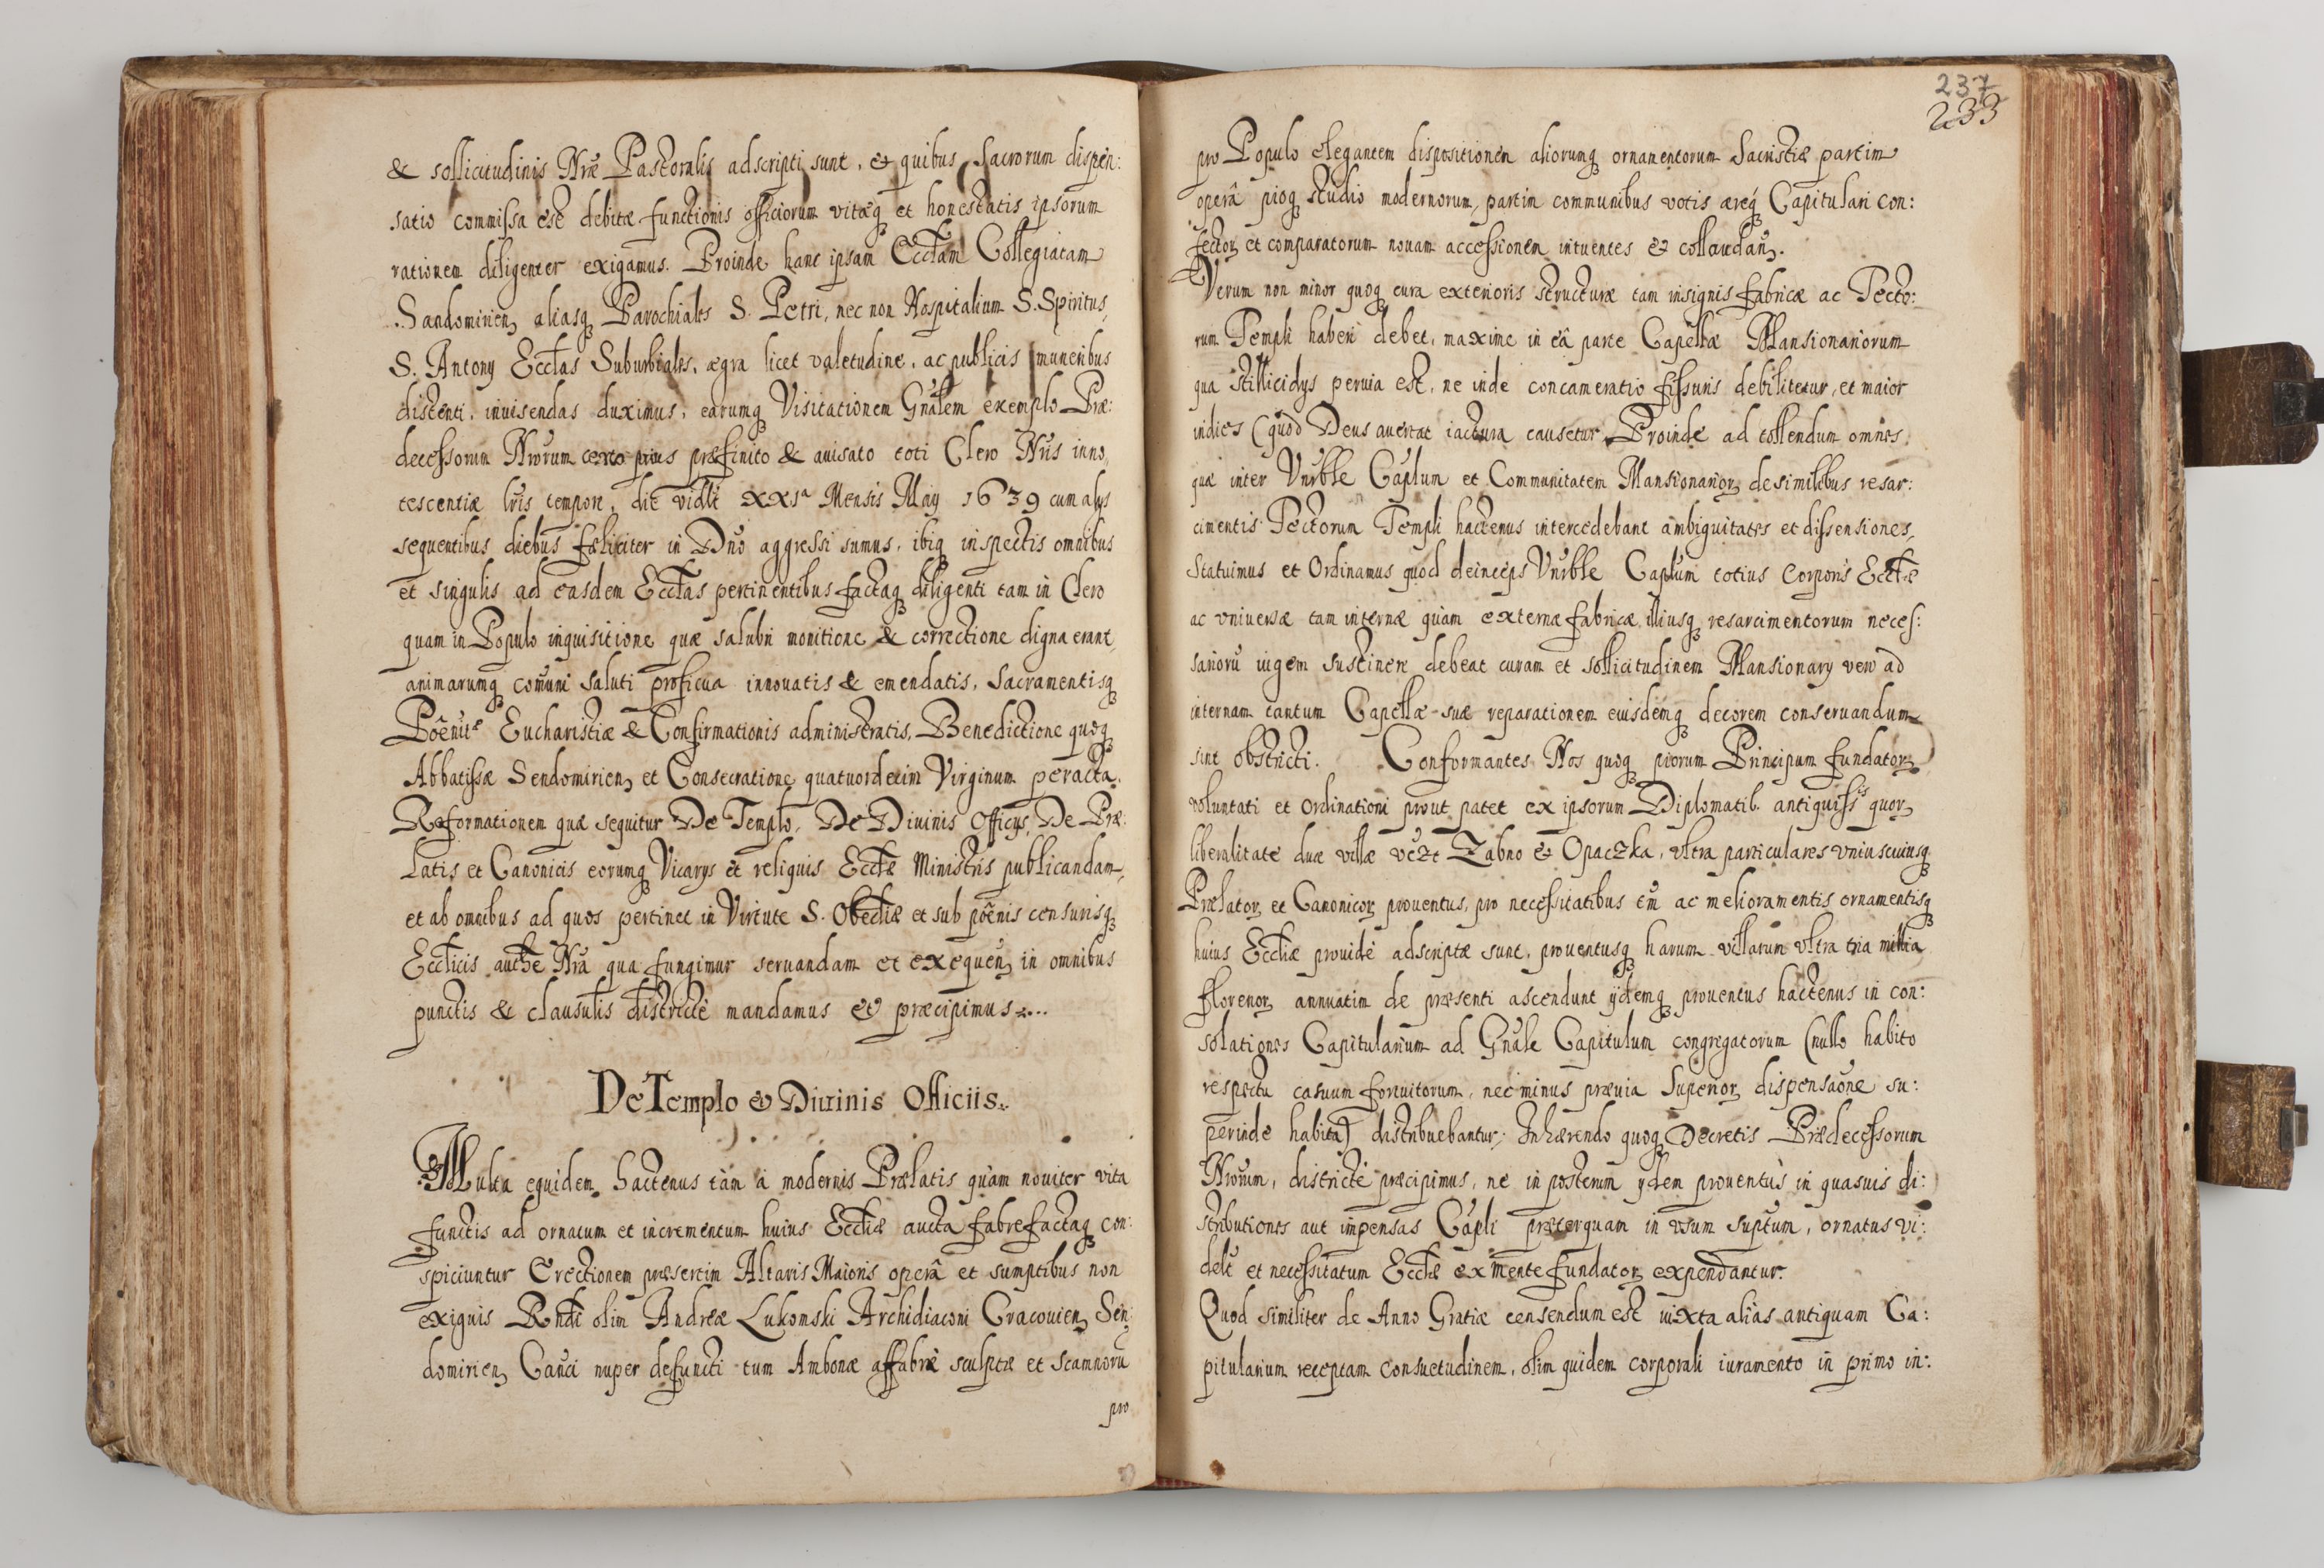 & sollicitudinis Nræ Pastoralis adscripti sunt, et quibus Sacrorum dispen:
satio commissa est debitæ functionis officiorum vitæq et honestatis ipsorum
rationem diligenter exigamus. Proinde hanc ipsam Ecctam Collegiatam
Sandomirien, aliasq Parochiales S. Petri, nec non Hospitalium S. Spiritus,
S. Antony Ecctas Suburbiales, ægra licet valetudine, ac publicis muneribus
distenti, inuisendas duximus, earumq Visitationem Gnalem exemplo Præ:
decessorum Nrorum certo prius præfinito & auisato toti Clero Nris inno
tescentiæ lris tempore, die vidlt XXIa Mensis May 1639 cum alys
sequentibus diebus fæliciter in Dno aggressi sumus, ibiq inspectis omnibus
et singulis ad easdem Ecctas pertinentibus factaq diligenti tam in Clero
quam in Populo inquisitione quæ salubri monitione & correctione digna erant,
animarumq comuni saluti proficua innouatis & emendatis, Sacramentisq
Poenitæ Eucharistiæ & Confirmationis administratis, Benedictione quoq
Abbatissæ Sendomirien, et Consecratione quatuordecim Virginum peracta,
Reformationem quæ sequitur De Templo, De Diuinis Officys, De Præ:
latis et Canonicis eorumq Vicarys et reliquis Ecctæ Ministris publicandam,
et ab omnibus ad quos pertinet in Virtute S. Obediæ et sub poenis censurisq
Eccticis authe Nra qua fungimur seruandam et exequen, in omnibus
punctis & clausulis districte mandamus et præcipimus...
De Templo & Diuinis Officiis.
Multa equidem hactenus tam a modernis Prælatis quam nouiter vita
functis ad ornatum et incrementum huius Eccliæ aucta fabrefactaq con:
spiciuntur Erectionem præsertim Altaris Maioris opera et sumptibus non
exiguis Rndi olim Andreæ Lukomski Archidiaconi Cracouien, Sen:
domirien, Canci nuper defuncti tum Ambonæ affabre sculptæ et scamnoru
pro
237
233
pro Populo elegantem dispositionem aliorumq ornamentorum Sacristiæ partim
opera pioq studio modernorum, partim communibus votis æreq Capitulari con:
fector, et comparatorum nouam accessionem intuentes & collaudan,.
Verum non minor quoq cura exterioris structuræ tam insignis fabricæ ac Tecto:
rum Templi haberi debet, maxime in ea parte Capellæ Mansionariorum
qua stillicidys peruia est, ne inde concameratio fissuris debilitetur, et maior
indies (quod Deus auertat iactura causetur. Proinde ad tollendum omnes,
quæ inter Vnrble Caplum et Communitatem Mansionarior, de similibus resar:
cimentis Tectorum Templi hactenus intercedebant ambiguitates et dissensiones,
Statuimus et Ordinamus quod deinceps Vnrble Caplum totius Corporis Ecctæ
ac vniuersæ tam internæ quam externæ fabricæ illiusq resarcimentorum neces:
sarioru iugem sustinere debeat curam et sollicitudinem Mansionary vero ad
internam tantum Capellæ suæ reparationem eiusdemq decorem conseruandum
sint obstricti. Conformantes Nos quoq piorum Principum fundator,
voluntati et Ordinationi prout patet ex ipsorum Diplomatib. antiquisss quor,
liberalitate duæ villæ vczt Zabno & Opaczka, vltra particulares vniuscuiusq
Prælator, et Canonicor, prouentus, pro necessitatibus tm ac melioramentis ornamentisq
huius Eccliæ prouide adscriptæ sunt, prouentusq harum villarum vltra tria millia
florenor, annuatim de præsenti ascendunt ydemq prouentus hactenus in con:
solationes Capitularium ad Gnale Capitulum congregatorum (nullo habito
respectu casuum fortuitorum, nec minus præuia Superior, dispensaone su:
perinde habita) distribuebantur, Inhærendo quoq Decretis Prædecessorum
Nrorum, districte præcipimus, ne in posterum ydem prouentus in quasuis di:
stributiones aut impensas Capli præterquam in vsum suptum, ornatus vi:
delt et necessitatum Ecctæ ex mente fundator, expendantur.
Quod similiter de Anno Gratiæ censendum est iuxta alias antiquam Ca:
pitularium receptam consuetudinem, olim quidem corporali iuramento in primo in: